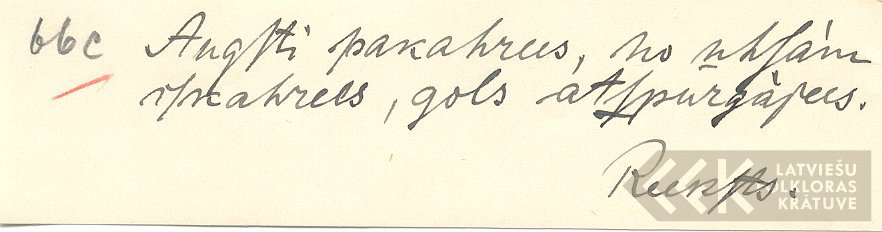 66c Augſti pakahrees, no uhſâm
iſkahrees, gols atſpūrgâjees.
Reekſts.
LATVIEŠU
FOLKLORAS
KRĀTUVE